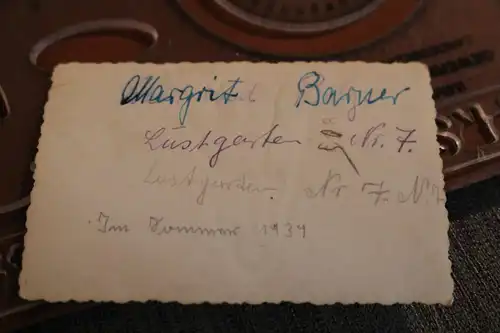 Margrit Barner
Lustgarten Nr. 7.
Lustgarten Nr 7. N. 7
Im Sommer 1934